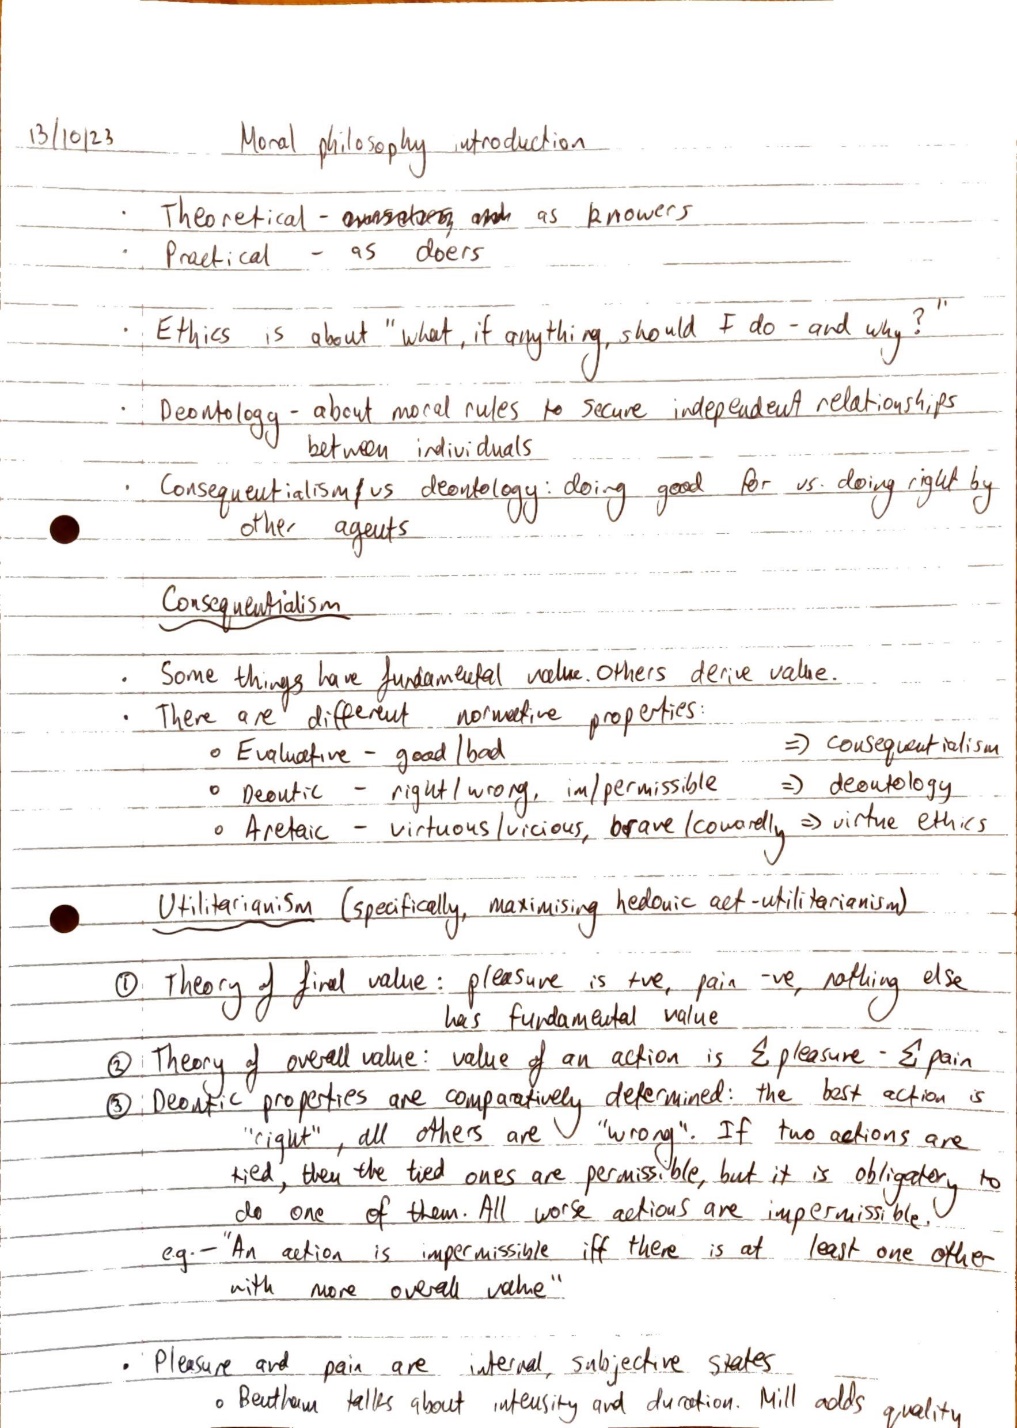 13/10/23 Moral philosophy introduction
· Theoretical - as knowers
· Practical - as doers
· Ethics is about "what, if anything, should I do - and why?"
· Deontology - about moral rules to secure independent relationships
between individuals
· Consequentialism vs deontology: doing good for vs. doing right by
other agents
Consequentialism
· Some things have fundamental value. Others derive value.
· There are different normative properties:
o Evaluative - good/bad => consequentialism
o Deontic - right/wrong, im/permissible => deontology
o Aretaic - virtuous/vicious, brave/cowardly => virtue ethics
Utilitarianism (specifically, maximising hedonic act-utilitarianism)
① Theory of final value: pleasure is +ve, pain -ve, nothing else
has fundamental value
② Theory of overall value: value of an action is Σ pleasure - Σ pain
③ Deontic properties are comparatively determined: the best action is
"right", all others are "wrong". If two actions are
tied, then the tied ones are permissible, but it is obligatory to
do one of them. All worse actions are impermissible.
eg. - "An action is impermissible iff there is at least one other
with more overall value"
· Pleasure and pain are internal, subjective states
o Bentham talks about intensity and duration. Mill adds quality